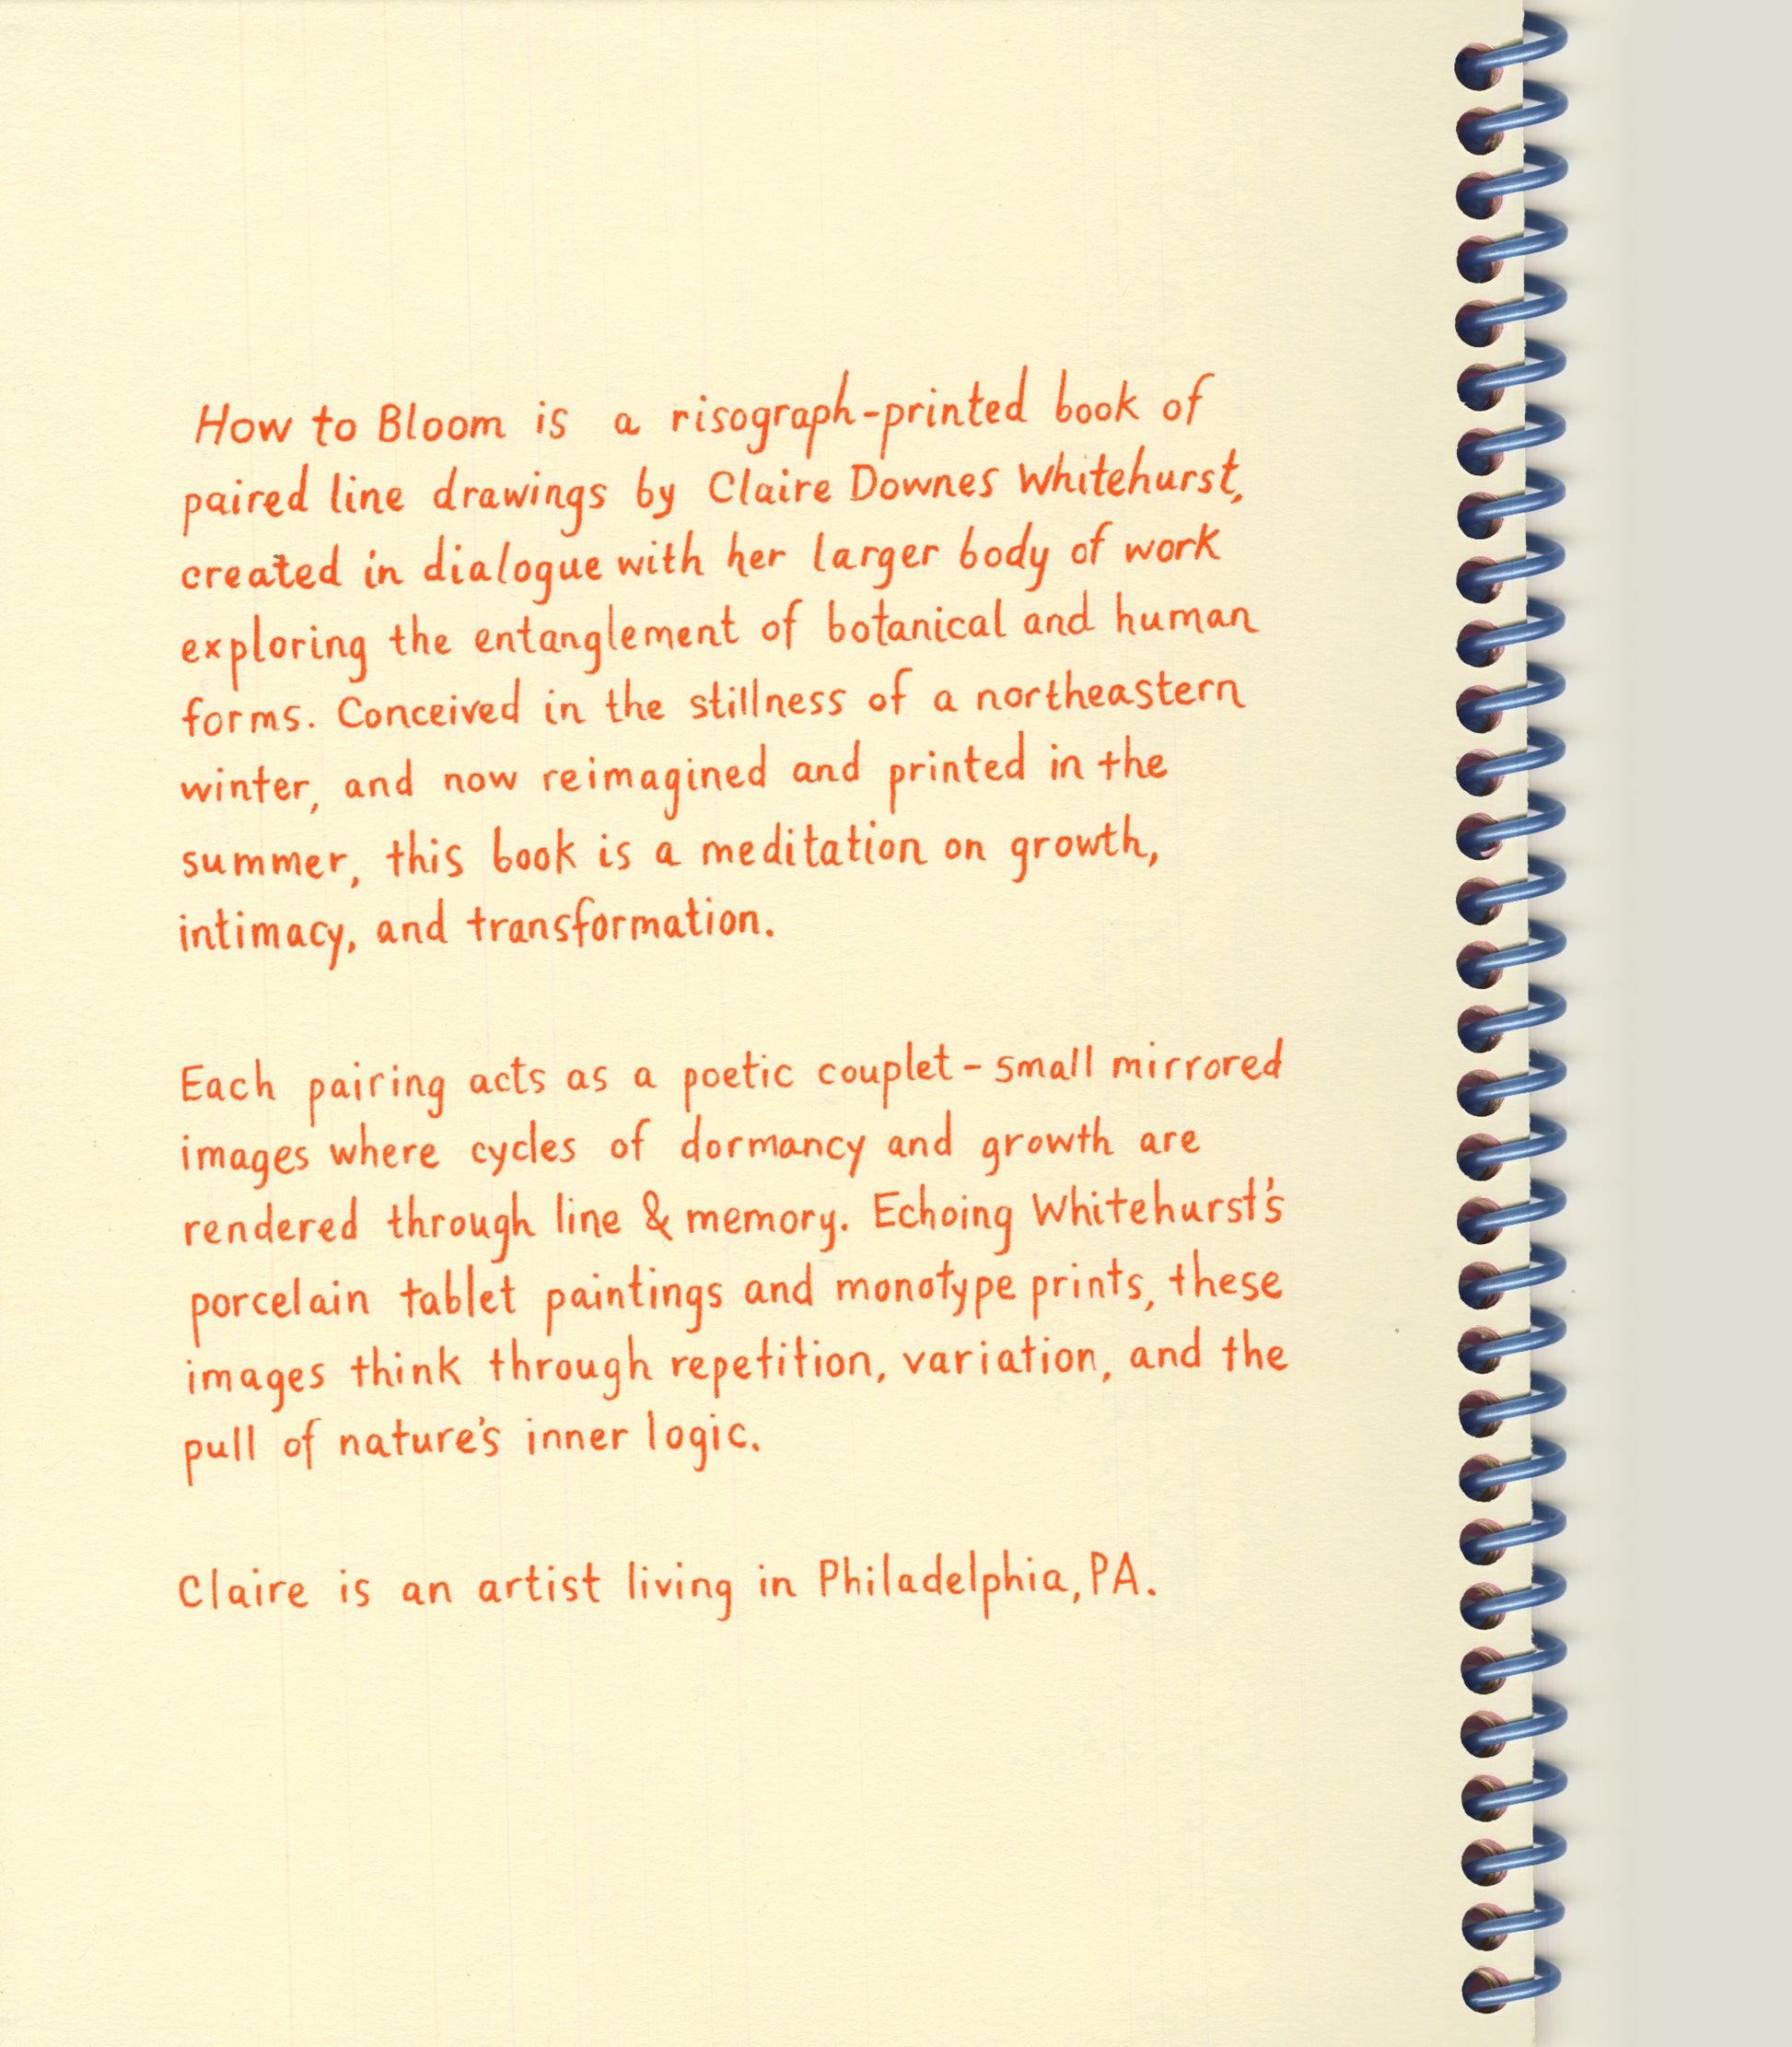 How to Bloom is a risograph-printed book of
paired line drawings by Claire Downes Whitehurst,
created in dialogue with her larger body of work
exploring the entanglement of botanical and human
forms. Conceived in the stillness of a northeastern
winter, and now reimagined and printed in the
summer, this book is a meditation on growth,
intimacy, and transformation.
Each pairing acts as a poetic couplet - small mirrored
images where cycles of dormancy and growth are
rendered through line & memory. Echoing Whitehurst's
porcelain tablet paintings and monotype prints, these
images think through repetition, variation, and the
pull of nature's inner logic.
Claire is an artist living in Philadelphia, PA.